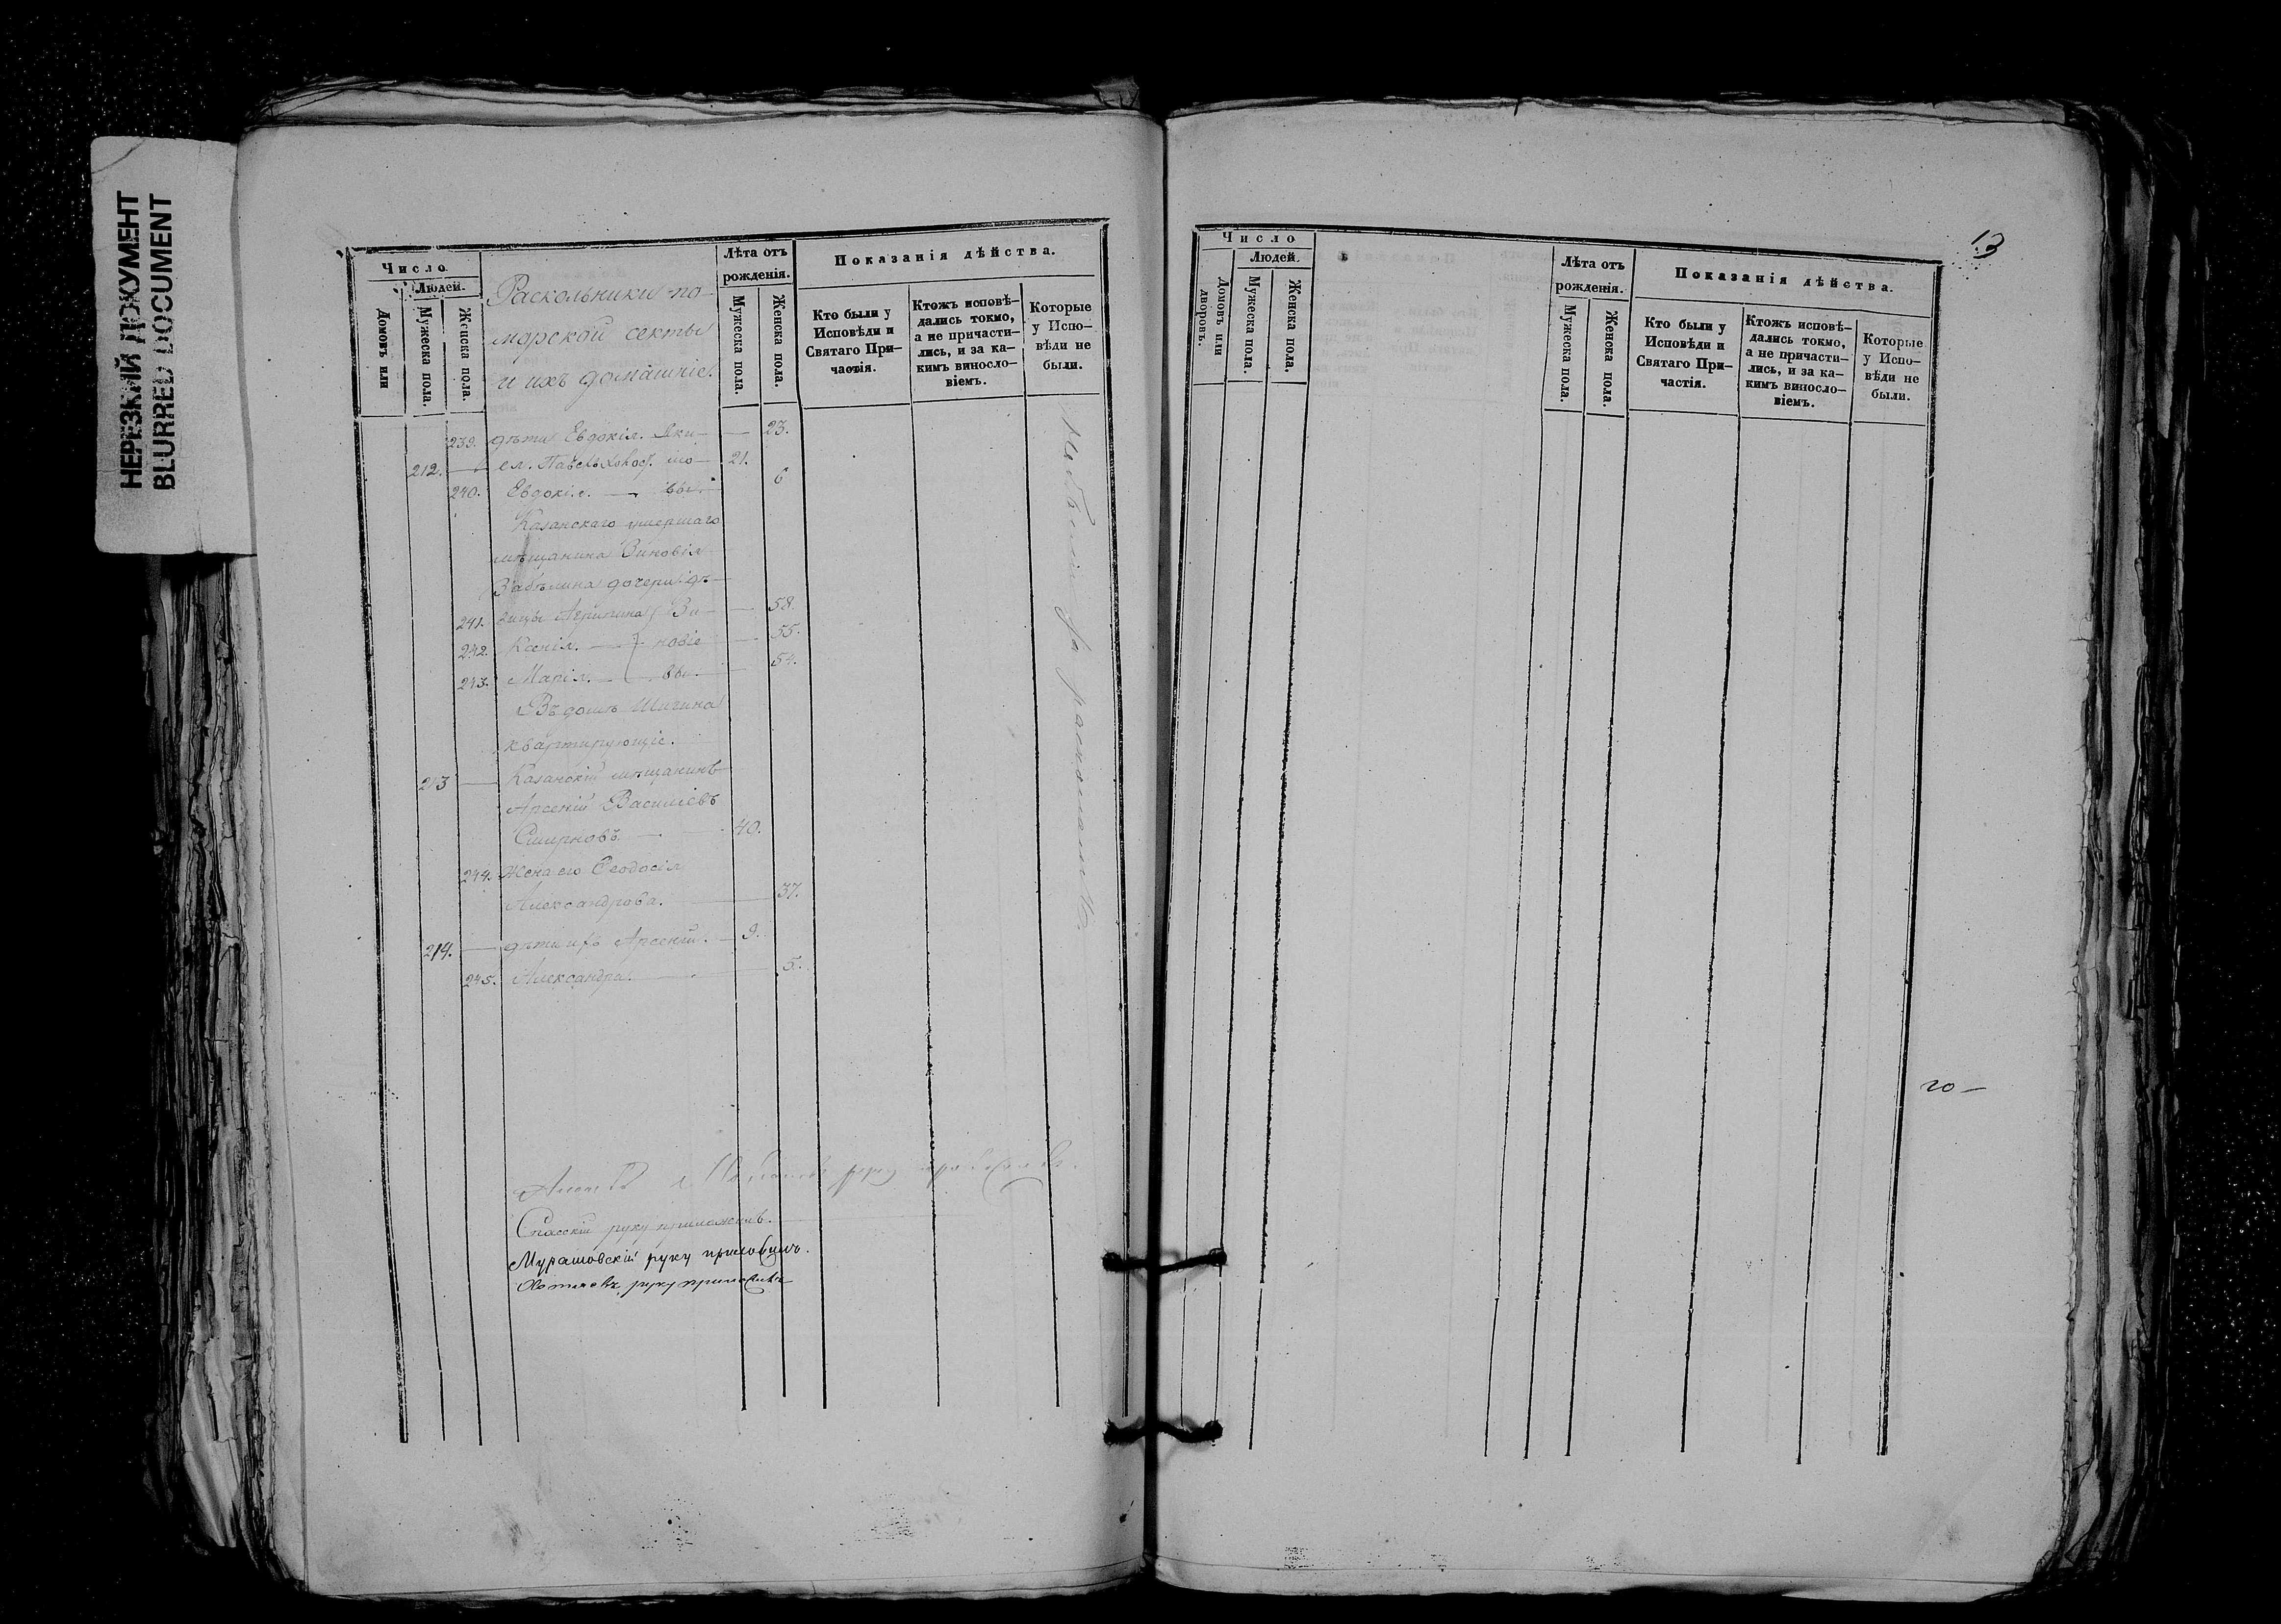 НЕРЕЗКИЙ ДОКУМЕНТ
BLURRED DOCUMENT
Число
Людей.
Домовъ или
Мужеска пола.
Женска пола.
Раскольники по-
морской секты
и ихъ домашніе.
Лѣта отъ
рожденія.
Мужеска пола.
Женска пола.
Показанія дѣйства.
Кто были у
Исповѣди и
Святаго При-
частія.
Ктожъ исповѣ-
дались токмо,
а не причасти-
лись, и за ка-
кимъ виносло-
віемъ.
Которые
у Испо-
вѣди не
были.
239. дѣти Евдокія. Яки- — 23.
212. — ел. Павелъ мо- 21.
240. Евдокія. — вы. 6
Казанскаго умершаго
мѣщанина Зиновія
Забѣлина дочери дѣ-
241. вицы Агрипина Зи- — 58.
242. Ксенія. — новіе — 55.
243. Марія. — вы. — 54.
Въ домѣ Шигина
квартирующіе.
213 — Казанскій мѣщанинъ
Арсеній Василіевъ
Смирновъ. — 40.
244. Жена его Ѳеодосія
Александрова. — 37.
214. — дѣти ихъ Арсеній. — 9.
245. Александра. — 5.
за расколомъ.
Спасскій руку приложилъ.
Мурашовскій руку приложилъ.
руку приложилъ
13
Число
Людей.
Домовъ или
дворовъ.
Мужеска пола.
Женска пола.
Лѣта отъ
рожденія.
Мужеска пола.
Женска пола.
Показанія дѣйства.
Кто были у
Исповѣди и
Святаго При-
частія.
Ктожъ исповѣ-
дались токмо,
а не причасти-
лись, и за ка-
кимъ виносло-
віемъ.
Которые
у Испо-
вѣди не
были.
го —